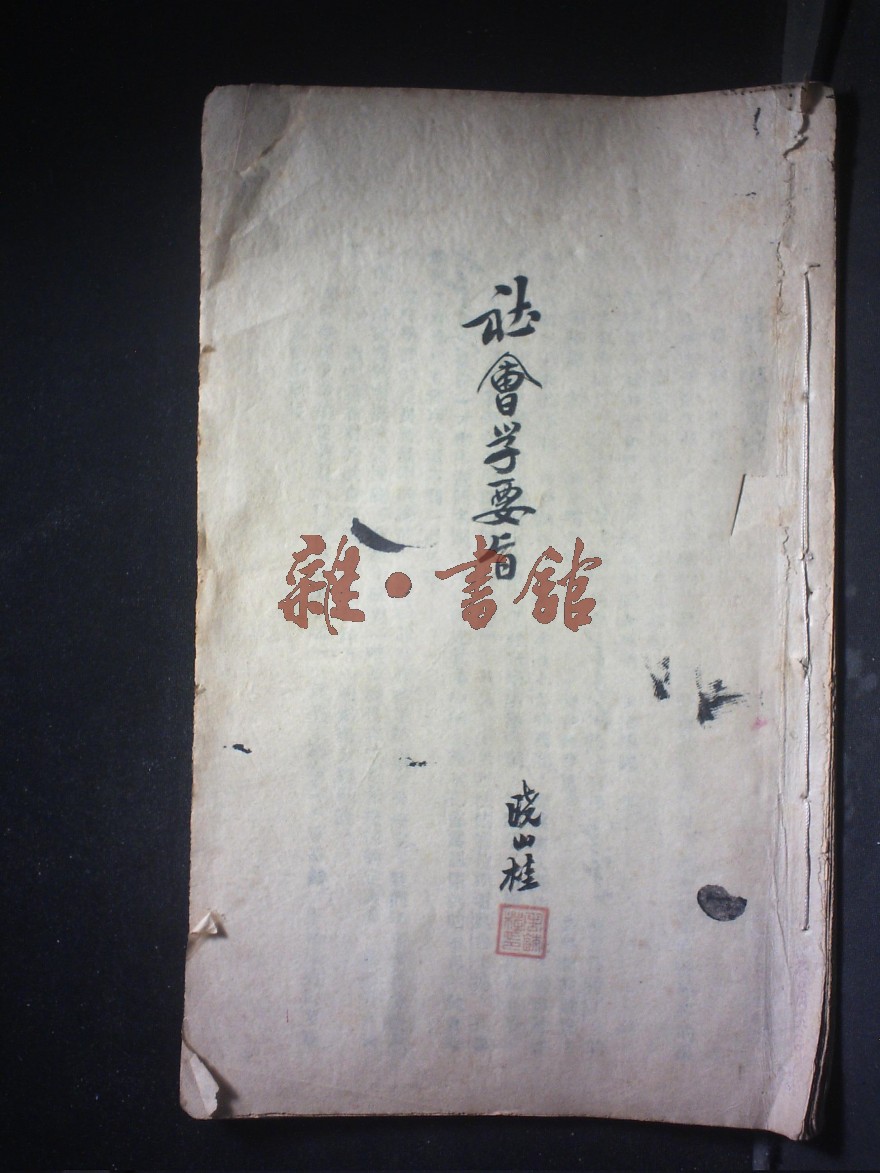 社會学要旨
雜·書館
晓山桂